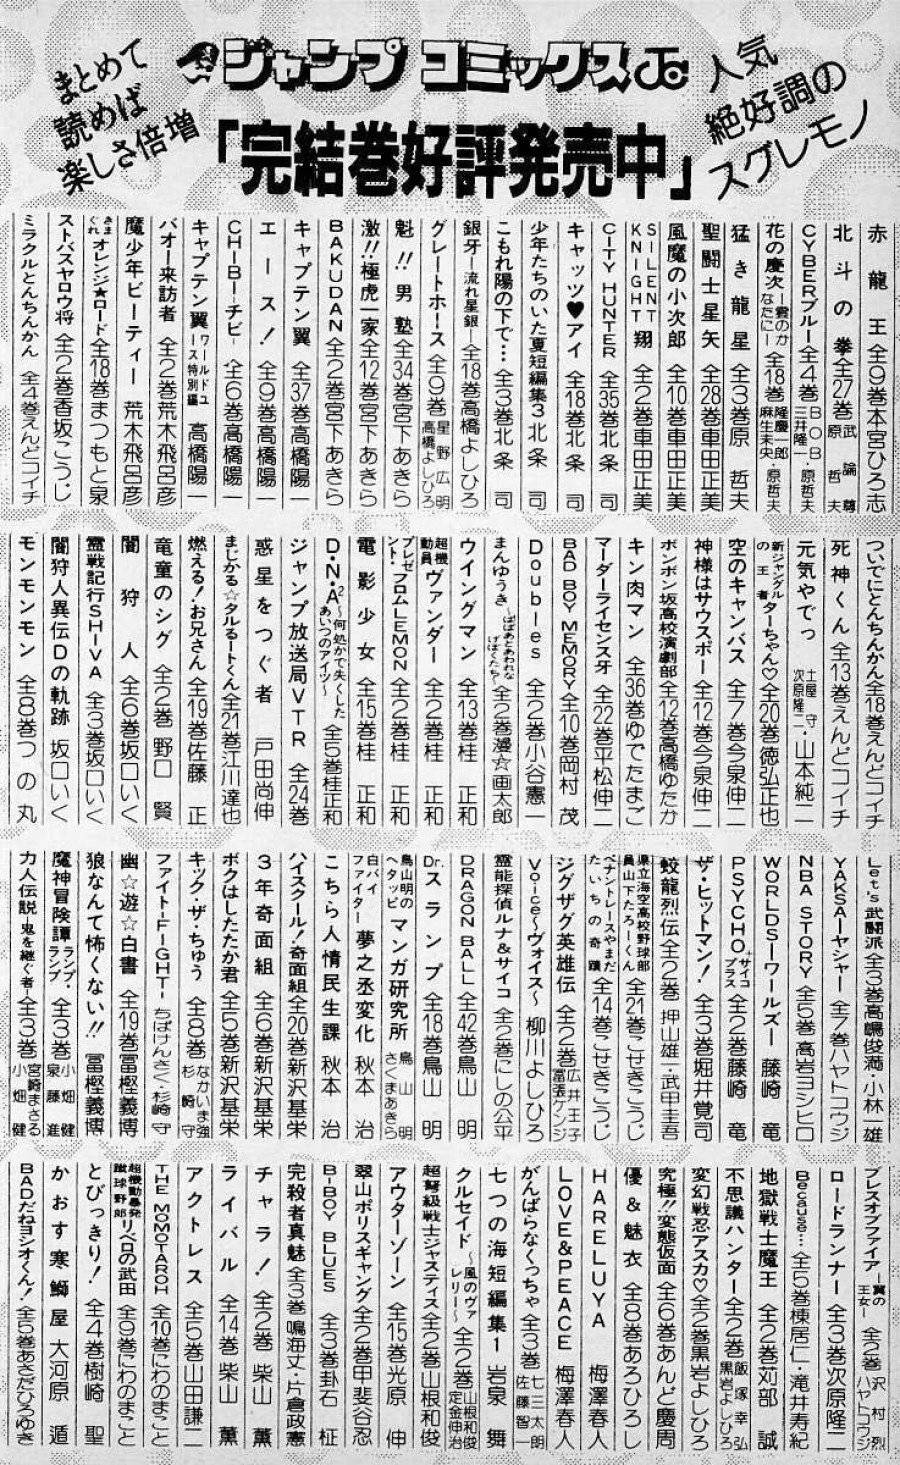 まとめて
読めば
楽しさ倍増
ジャンプ コミックス
「完結巻好評発売中」
人気
絶好調の
スグレモノ
赤龍王 全9巻 本宮ひろ志
北斗の拳 全27巻 武論尊 原哲夫
CYBERブルー 全4巻 BOB・三井隆一・原哲夫
花の慶次―雲のかなたに― 全18巻 隆慶一郎・麻生未央・原哲夫
猛き龍星 全3巻 原哲夫
聖闘士星矢 全28巻 車田正美
風魔の小次郎 全10巻 車田正美
SILENT KNIGHT 翔 全2巻 車田正美
CITY HUNTER 全35巻 北条司
キャッツ♥アイ 全18巻 北条司
少年たちのいた夏短編集3 北条司
こもれ陽の下で… 全3巻 北条司
銀牙―流れ星 銀― 全18巻 高橋よしひろ
グレートホース 全9巻 星野広明 高橋よしひろ
魁!!男塾 全34巻 宮下あきら
激!!極虎一家 全12巻 宮下あきら
BAKUDAN 全2巻 宮下あきら
キャプテン翼 全37巻 高橋陽一
エース! 全9巻 高橋陽一
CHIBI―チビ― 全6巻 高橋陽一
キャプテン翼 ワールドユース特別編 高橋陽一
バオー来訪者 全2巻 荒木飛呂彦
魔少年ビーティー 荒木飛呂彦
きまぐれオレンジ★ロード 全18巻 まつもと泉
ストバスヤロウ将 全2巻 香坂こうじ
ミラクルとんちんかん 全4巻 えんどコイチ
ついでにとんちんかん 全18巻 えんどコイチ
死神くん 全13巻 えんどコイチ
元気やでっ 土屋守・次原隆二・山本純二
新ジャングルの王者ターちゃん♡ 全20巻 徳弘正也
空のキャンバス 全7巻 今泉伸二
神様はサウスポー 全12巻 今泉伸二
ボンボン坂高校演劇部 全12巻 高橋ゆたか
キン肉マン 全36巻 ゆでたまご
マーダーライセンス牙 全22巻 平松伸二
BAD BOY MEMORY 全10巻 岡村茂
Doubles 全2巻 小谷憲一
まんゆうき~ばばあとあわれなげぼくたち~ 全2巻 漫☆画太郎
ウイングマン 全13巻 桂正和
超機動員ヴァンダー 全2巻 桂正和
プレゼント・フロムLEMON 全2巻 桂正和
電影少女 全15巻 桂正和
D・N・A² ~何処かで失くしたあいつのアイツ~ 全5巻 桂正和
ジャンプ放送局VTR 全24巻
惑星をつぐ者 戸田尚伸
まじかる☆タルるートくん 全21巻 江川達也
燃える!お兄さん 全19巻 佐藤正
竜童のシグ 全2巻 野口賢
闇狩人 全6巻 坂口いく
霊戦記行SHIVA 全3巻 坂口いく
闇狩人異伝Dの軌跡 坂口いく
モンモンモン 全8巻 つの丸
Let's 武闘派 全3巻 高嶋俊満・小林一雄
YAKSA―ヤシャ― 全7巻 ハヤトコウジ
NBA STORY 全5巻 高岩ヨシヒロ
WORLDS―ワールズ― 藤崎竜
PSYCHO+サイコプラス 全2巻 藤崎竜
ザ・ヒットマン! 全3巻 堀井覚司
蛟龍烈伝 全2巻 押山雄一・武甲圭吾
県立海空高校野球部員山下たろーくん 全21巻 こせきこうじ
ペナントレースやまだたいちの奇蹟 全14巻 こせきこうじ
ジグザグ英雄伝 全2巻 広井王子 冨張ケンジ
Voice~ヴォイス~ 柳川よしひろ
霊能探偵ルナ&サイコ 全2巻 にしの公平
DRAGON BALL 全42巻 鳥山明
Dr.スランプ 全18巻 鳥山明
鳥山明のヘタッピマンガ研究所 鳥山明 さくまあきら
白バイファイター夢之丞変化 秋本治
こちら人情民生課 秋本治
ハイスクール!奇面組 全20巻 新沢基栄
3年奇面組 全6巻 新沢基栄
ボクはしたたか君 全5巻 新沢基栄
キック・ザ・ちゅう 全8巻 なかいま強 杉崎守
ファイト―FIGHT― ちばけんさく・杉崎守
幽☆遊☆白書 全19巻 冨樫義博
狼なんて怖くない!! 冨樫義博
魔神冒険譚ランプ・ランプ 全3巻 小畑健 泉藤進
力人伝説―鬼を継ぐ者― 全3巻 宮崎まさる 小畑健
ブレスオブファイア―翼の王女― 全2巻 沢村烈 ハヤトコウジ
ロードランナー 全3巻 次原隆二
Because… 全5巻 棟居仁・滝井寿紀
地獄戦士魔王 全2巻 刈部誠
不思議ハンター 全2巻 飯塚幸弘 黒岩よしひろ
変幻戦忍アスカ♡ 全2巻 黒岩よしひろ
究極!!変態仮面 全6巻 あんど慶周
優&魅衣 全8巻 あろひろし
HARELUYA 梅澤春人
LOVE&PEACE 梅澤春人
がんばらなくっちゃ 全3巻 七三太朗 佐藤智一
七つの海短編集1 岩泉舞
クルセイド~風のヴァレリー~ 全2巻 山根和俊 定金伸治
超弩級戦士ジャスティス 全2巻 山根和俊
アウターゾーン 全15巻 光原伸
翠山ポリスギャング 全2巻 甲斐谷忍
B-BOY BLUES 全3巻 卦石柾
完殺者真魅 全3巻 鳴海丈・片倉政憲
チャラ! 全2巻 柴山薫
ライバル 全14巻 柴山薫
アクトレス 全5巻 山田謙二
THE MOMOTAROH 全10巻 にわのまこと
超機動暴発蹴球野郎リベロの武田 全9巻 にわのまこと
とびっきり! 全4巻 樹崎聖
かおす寒鰤屋 大河原遁
BADだねヨシオくん! 全5巻 あさだひろゆき